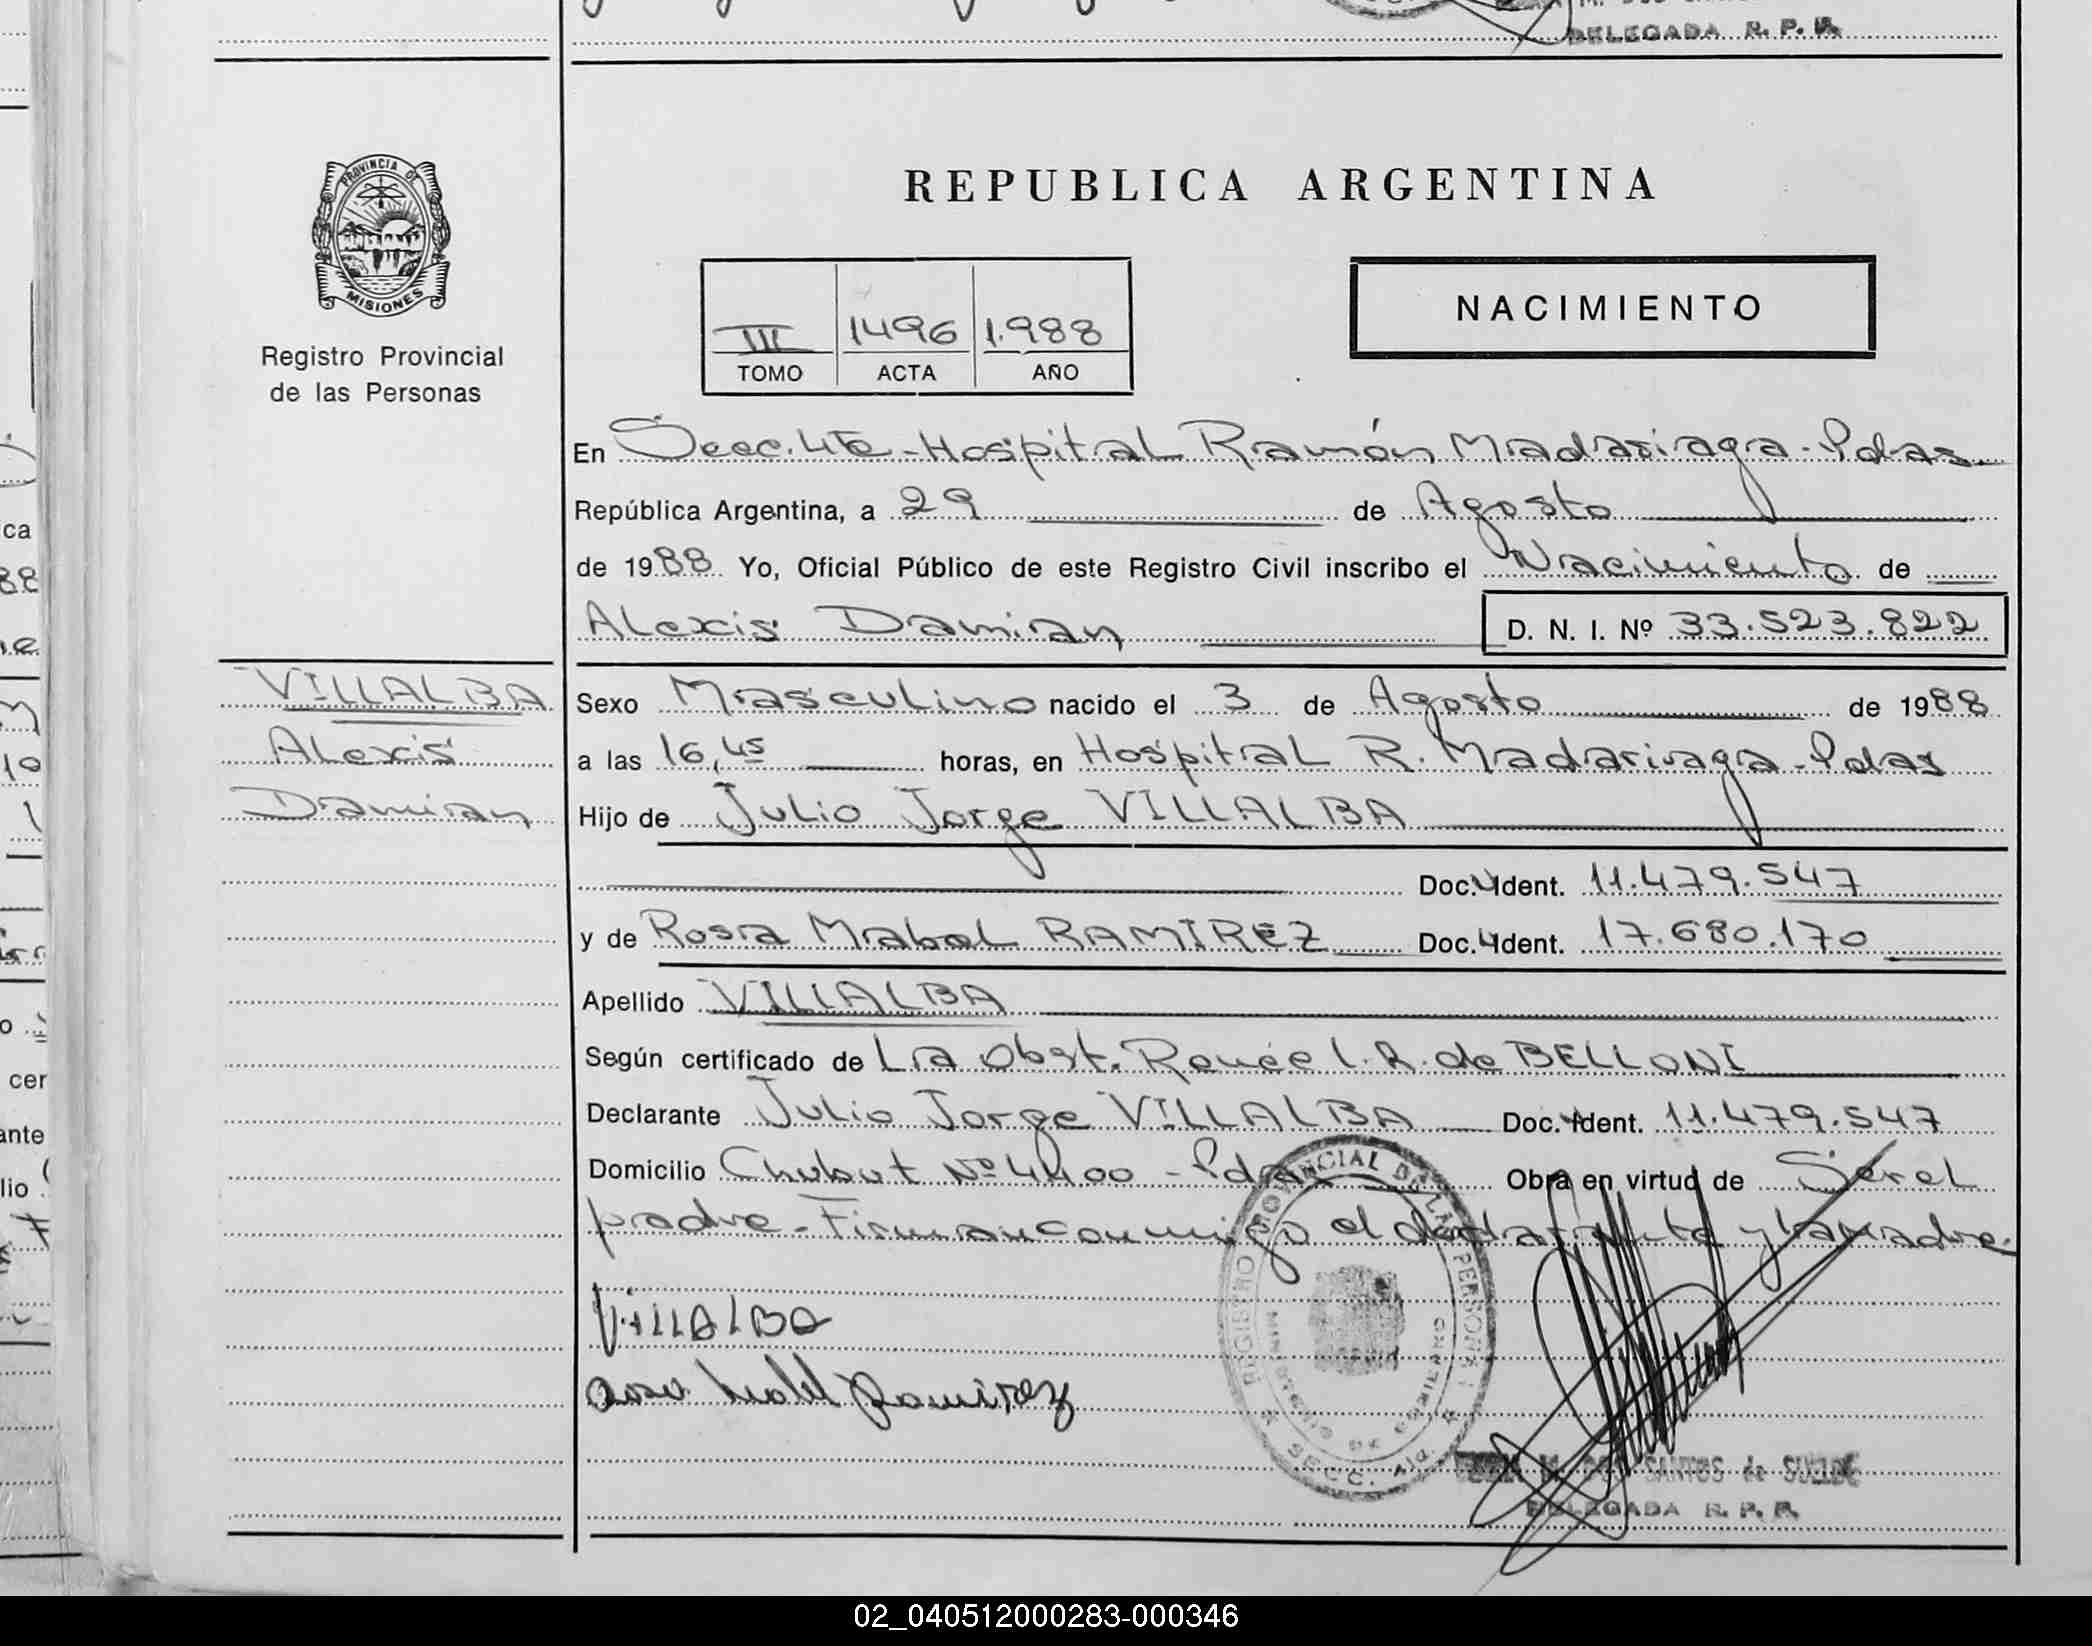 DELEGADA R. P. P.
PROVINCIA DE
MISIONES
Registro Provincial
de las Personas
REPUBLICA ARGENTINA
III 1496 1.988
TOMO ACTA AÑO
NACIMIENTO
En Secc. 4ta - Hospital Ramón Madariaga - Pdas.
República Argentina, a 29 de Agosto
de 1988 Yo, Oficial Público de este Registro Civil inscribo el Nacimiento de
Alexis Damian D. N. I. Nº 33.523.822
VILLALBA
Alexis
Damian
Sexo Masculino nacido el 3 de Agosto de 1988
a las 16,45 horas, en Hospital R. Madariaga - Pdas
Hijo de Julio Jorge VILLALBA
Doc. Ident. 11.479.547
y de Rosa Mabel RAMIREZ Doc. Ident. 17.680.170
Apellido VILLALBA
Según certificado de La Obst. Renée I. R. de BELLONI
Declarante Julio Jorge VILLALBA Doc. Ident. 11.479.547
Domicilio Chubut Nº 4400 - Pdas Obra en virtud de Ser el
padre - Firman conmigo el declarante y la madre.
VILLALBA
Rosa Mabel Ramirez
REGISTRO PROVINCIAL DE LAS PERSONAS
MINISTERIO DE GOBIERNO
SECC. 4ta.
SANTOS de
DELEGADA R. P. P.
02_040512000283-000346